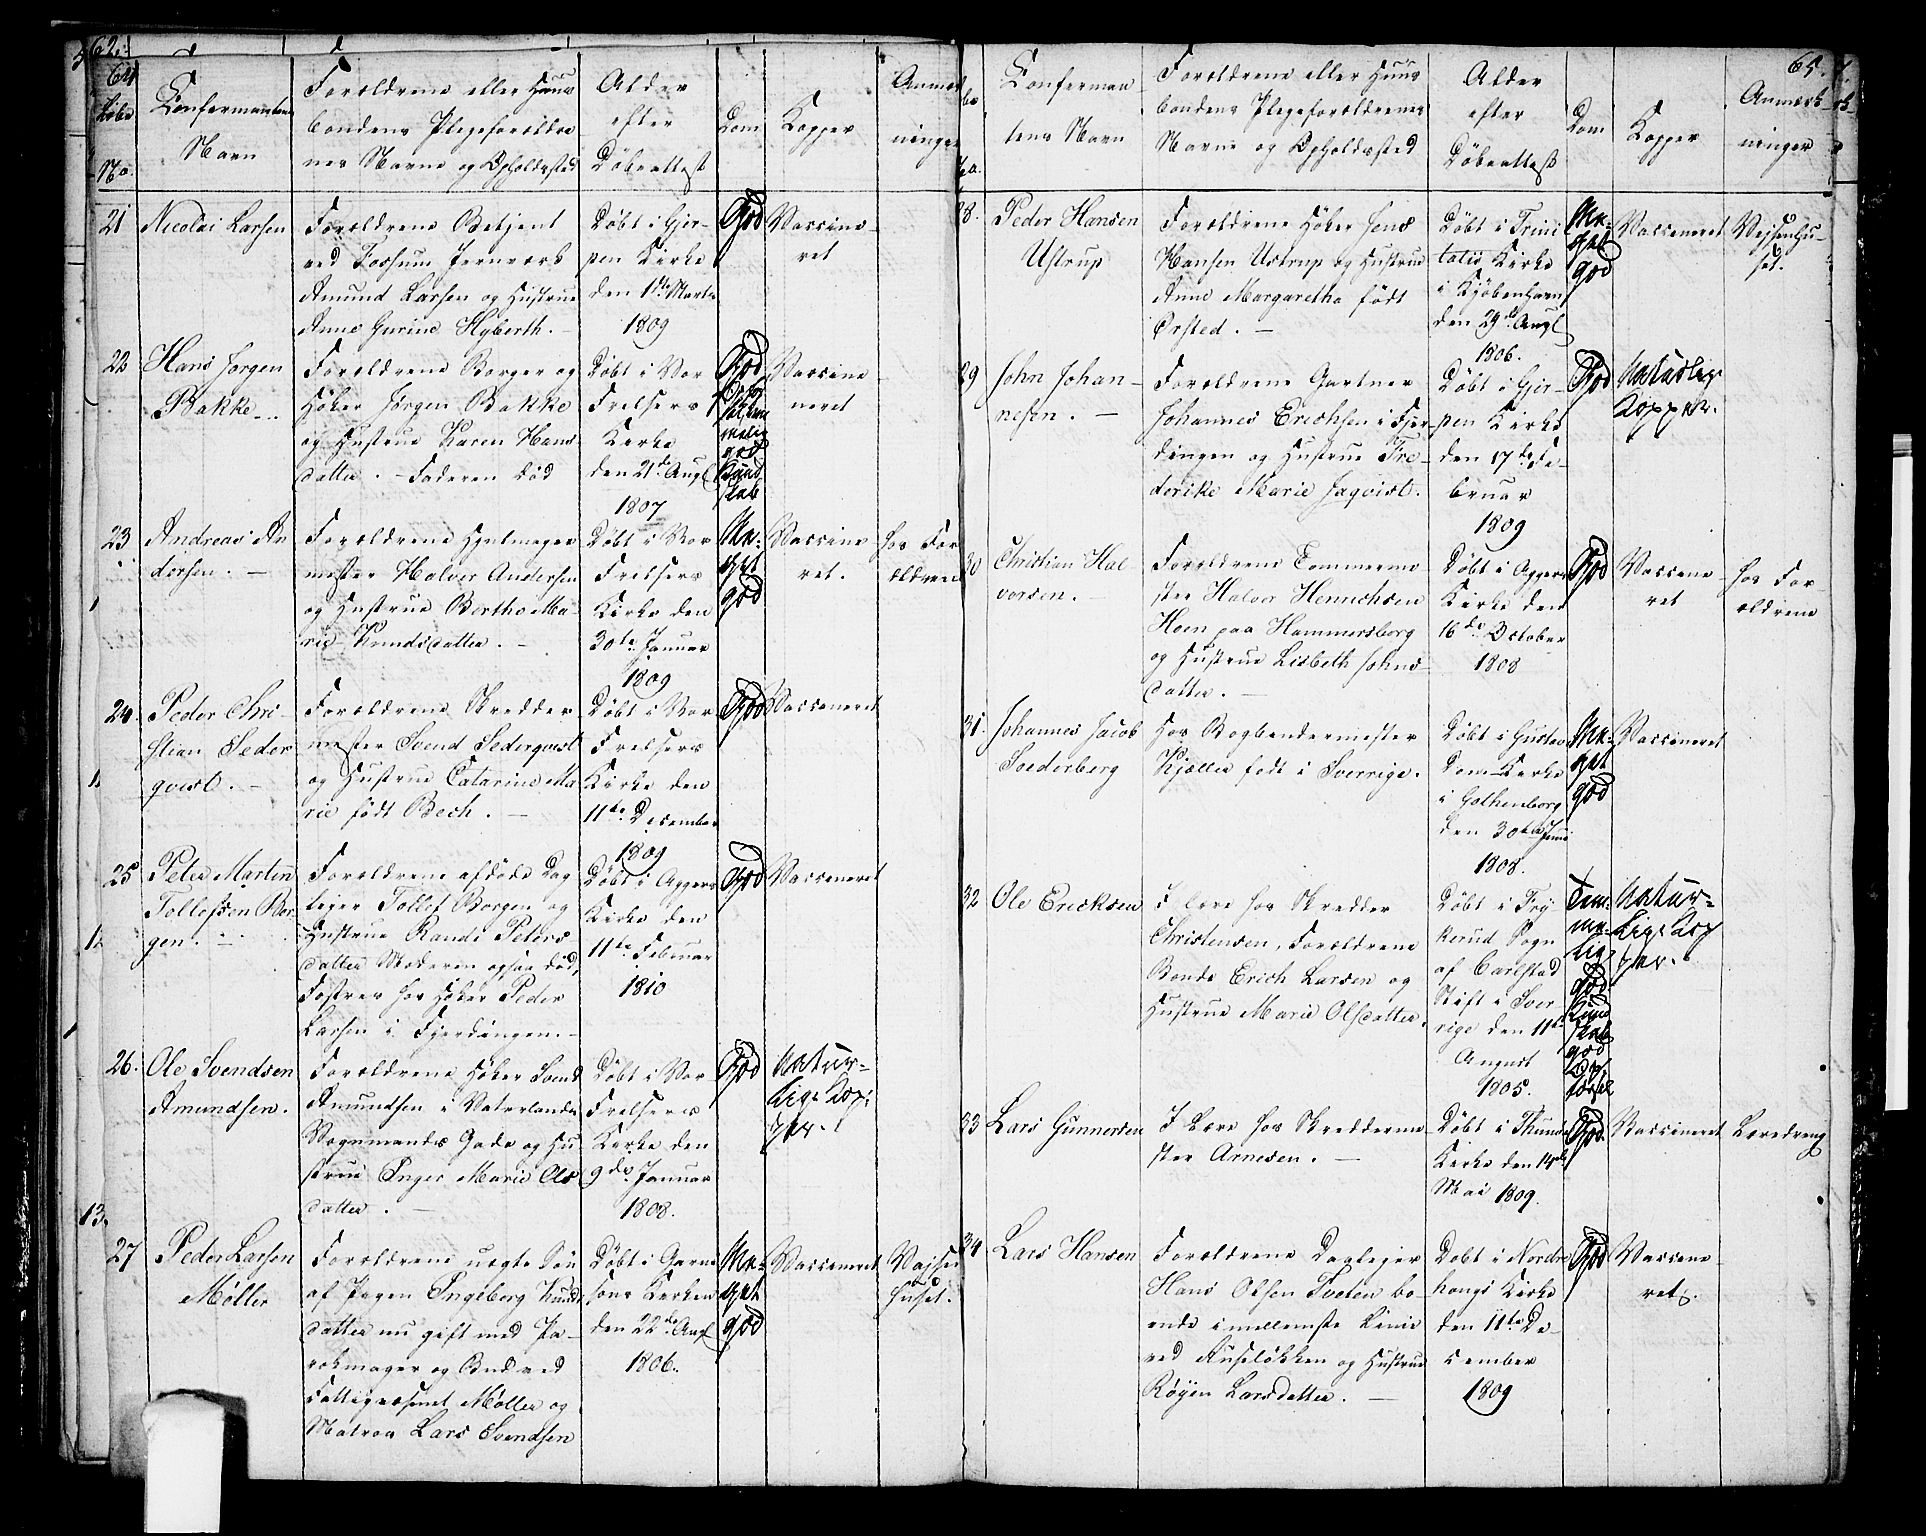 62.
64
Løbe
No.
Confermantens
Navn
Forældrene eller Huus
bondens Plegeforældre
nes Navne og Opholdssted
Alder
efter
Døbeattest
Dom
Kopper
Anmærk
ninger
21
Nicolai Larsen
Forældrene Betjent
ved Fossum Jernværk
Amund Larsen og Hustrue
Anne Gurine Hyberth. -
Døbt i Gjer-
pen Kirke
den 1ste Martz
1809
God
Vaccine-
ret
22
Hans Jørgen
Bakke. -
Forældrene Borger og
Høker Jørgen Bakke
og Hustrue Karen Hans
datter. - Faderen død
Døbt i Vor
Frelsers
Kirke
den 21de Augt
1807
God
melig
god
Kund
skab
Vaccine
neret
23
Andreas An
dersen. -
Forældrene Hjulmager
mester Halvor Andersen
og Hustrue Berthe Ma-
rie Knudsdatter. -
Døbt i Vor
Frelsers
Kirke den
30te Januar
1809
Me-
get
god
Vaccine
ret.
hos For
ældrene
24.
Peder Chri-
stian Seder
qvist. -
Forældrene Skredder
mester Svend Sederqvist
og Hustrue Catarine Ma
rie født Bech. -
Døbt i Vor
Frelsers
Kirke den
11te December
1809
God
Vacceneret
25
Peter Martin
Tollefsen Bor-
gen. -
Forældrene afdøde Dag
lejer Tollef Borgen og
Hustrue Rande Peters
datter Moderen ogsaa død,
Fostres hos Høker Peder
Larsen i Fjerdingen. -
Døbt i Aggers
Kirke den
11te Februar
1810
God
Vacceneret
26.
Ole Svendsen
Amundsen.
Forældrene Høker Svend
Amundsen i Vaterlands
Vognmands Gade og Hu
strue Inger Marie Ols
datter. -
Døbt i Vor
Frelsers
Kirke den
9de Januar
1808.
God
Natur-
lige Kop-
per.
27
Peder Larsen
Møller
Forældrene uegte Søn
af Pigen Ingeborg Knuds
datter nu gift med Pa-
rokmager og Bud ved
Fattigvæsenet Møller og
Matros Lars Svendsen
Døbt i Garni
sons Kirken
den 22de Augt
1806.
Me-
get
god
Vacceneret
Vajsen
huset.
65.
No.
Conferman
tens Navn
Forældrene eller Huus
bondens Plegeforældrenes
Navne og Opholdssted
Alder
efter
Døbeattest
Dom
Kopper
Anmærk
ninger
28.
Peder Hansen
Ustrup
Forældrene Høker Jens
Hansen Ustrup og Hustrue
Anne Margaretha født
Ørsted. -
Døbt i Trini
tatis Kirke
i Kjøbenhavn
den 29de Augt
1806.
Me-
get
god
Vacceneret
Vejsenhu-
set.
29
John Johan-
nesen. -
Forældrene Gartner
Johannes Erichsen i Fjer-
dingen og Hustrue Fre-
derike Marie Jaqvist.
Døbt i Gjer-
pen Kirke
den 17de Fe-
bruar
1809
God
Naturlige
Kopper.
30
Christian Hal
vorsen. -
Forældrene Tommerme
ster Halvor Henrichsen
Hoen paa Hammersborg
og Hustrue Lisbeth Johns-
datter. -
Døbt i Aggers
Kirke den
16de October
1808
God
Vaccene-
ret
hos For
ældrene
31.
Johannes Jacob
Soederberg
Hos Bogbendermester
Kjæller født i Sverrige.
Døbt i Gustav
Dom-Kirke
i Gothenborg
den 30te Juni
1808.
Me-
get
god
Vacceneret
32
Ole Ericksen
I Lære hos Skredder
Christensen, Forældrene
Bonde Erich Larsen og
Hustrue Marie Olsdatter.
Døbt i Fry
kerud Sogn
af Carlstad
Stift i Sver
rige den 11te
August
1805.
Tem-
me-
lig
god
Kund
skab
god
Natur-
lige Kop
per.
33
Lars Gunnersen
I Lære hos Skredderme
ster Arnesen. -
Døbt i Thunds
Kirke den 14de
Mai 1809.
God
Vacceneret
Læredreng
34
Lars Hansen
Forældrene Daglejer
Hans Olsen Tveten bo-
ende i mellemste Linie
ved Ruseløkken og Hustrue
Røyen Larsdatter. -
Døbt i Nordre
hougs Kirke
den 11te De-
cember
1809
God
Vaccene-
ret.
13.